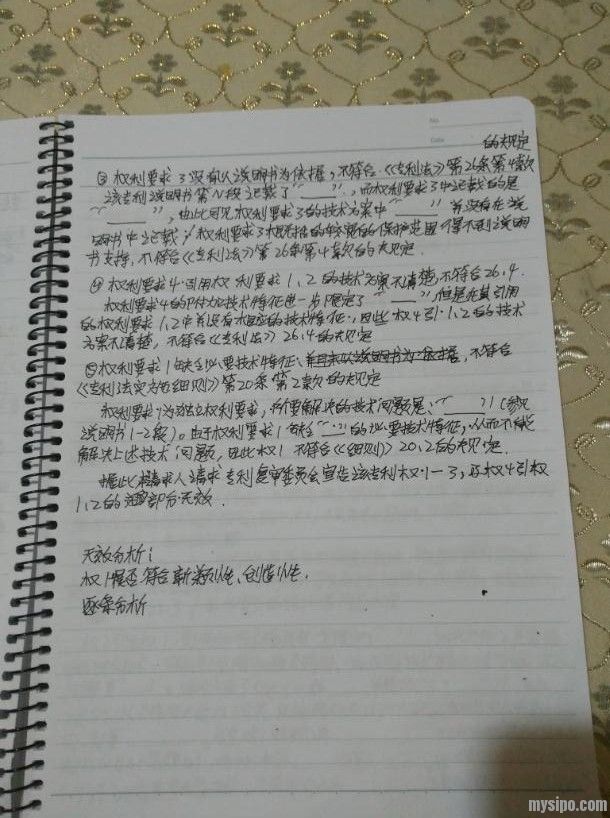 No.
Date
的规定
③ 权利要求3没有以说明书为依据,不符合《专利法》第26条第4款
该专利说明书第N段记载了“___”,而权利要求3中记载的是
“___”,由此可见权利要求3的技术方案中“___”并没有在说
明书中记载,权利要求3概括的较宽的保护范围得不到说明
书支持,不符合《专利法》第26条第4款的规定.
④ 权利要求4引用权利要求1、2的技术方案不清楚,不符合26.4.
权利要求4的附加技术特征进一步限定了“___”,但是在其引用
的权利要求1,2中并没有相应的技术特征,因此权4引1,2的技术
方案不清楚,不符合《专利法》26.4的规定
⑤ 权利要求1缺少必要技术特征、并且未以说明书为依据,不符合
《专利法实施细则》第20条第2款的规定
权利要求1为独立权利要求,所要解决的技术问题是、“___”(参见
说明书1-2段)。由于权利要求1缺少“___”的必要技术特征,从而不能
解决上述技术问题,因此权1不符合《细则》20.2的规定.
据此请求人请求专利复审委员会宣告该专利权1-3,及权4引权
1,2的部分无效.
无效分析:
权1是否符合新颖性、创造性.
逐条分析
mysipo.com